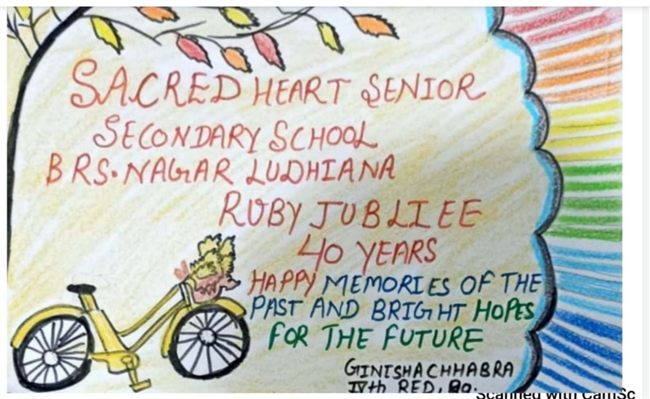 SACRED HEART SENIOR
SECONDARY SCHOOL
BRS·NAGAR LUDHIANA
RUBY JUBLIEE
40 YEARS
HAPPY MEMORIES OF THE
PAST AND BRIGHT HOPES
FOR THE FUTURE
GINISHA CHHABRA
IVth RED,
Scanned with CamSc